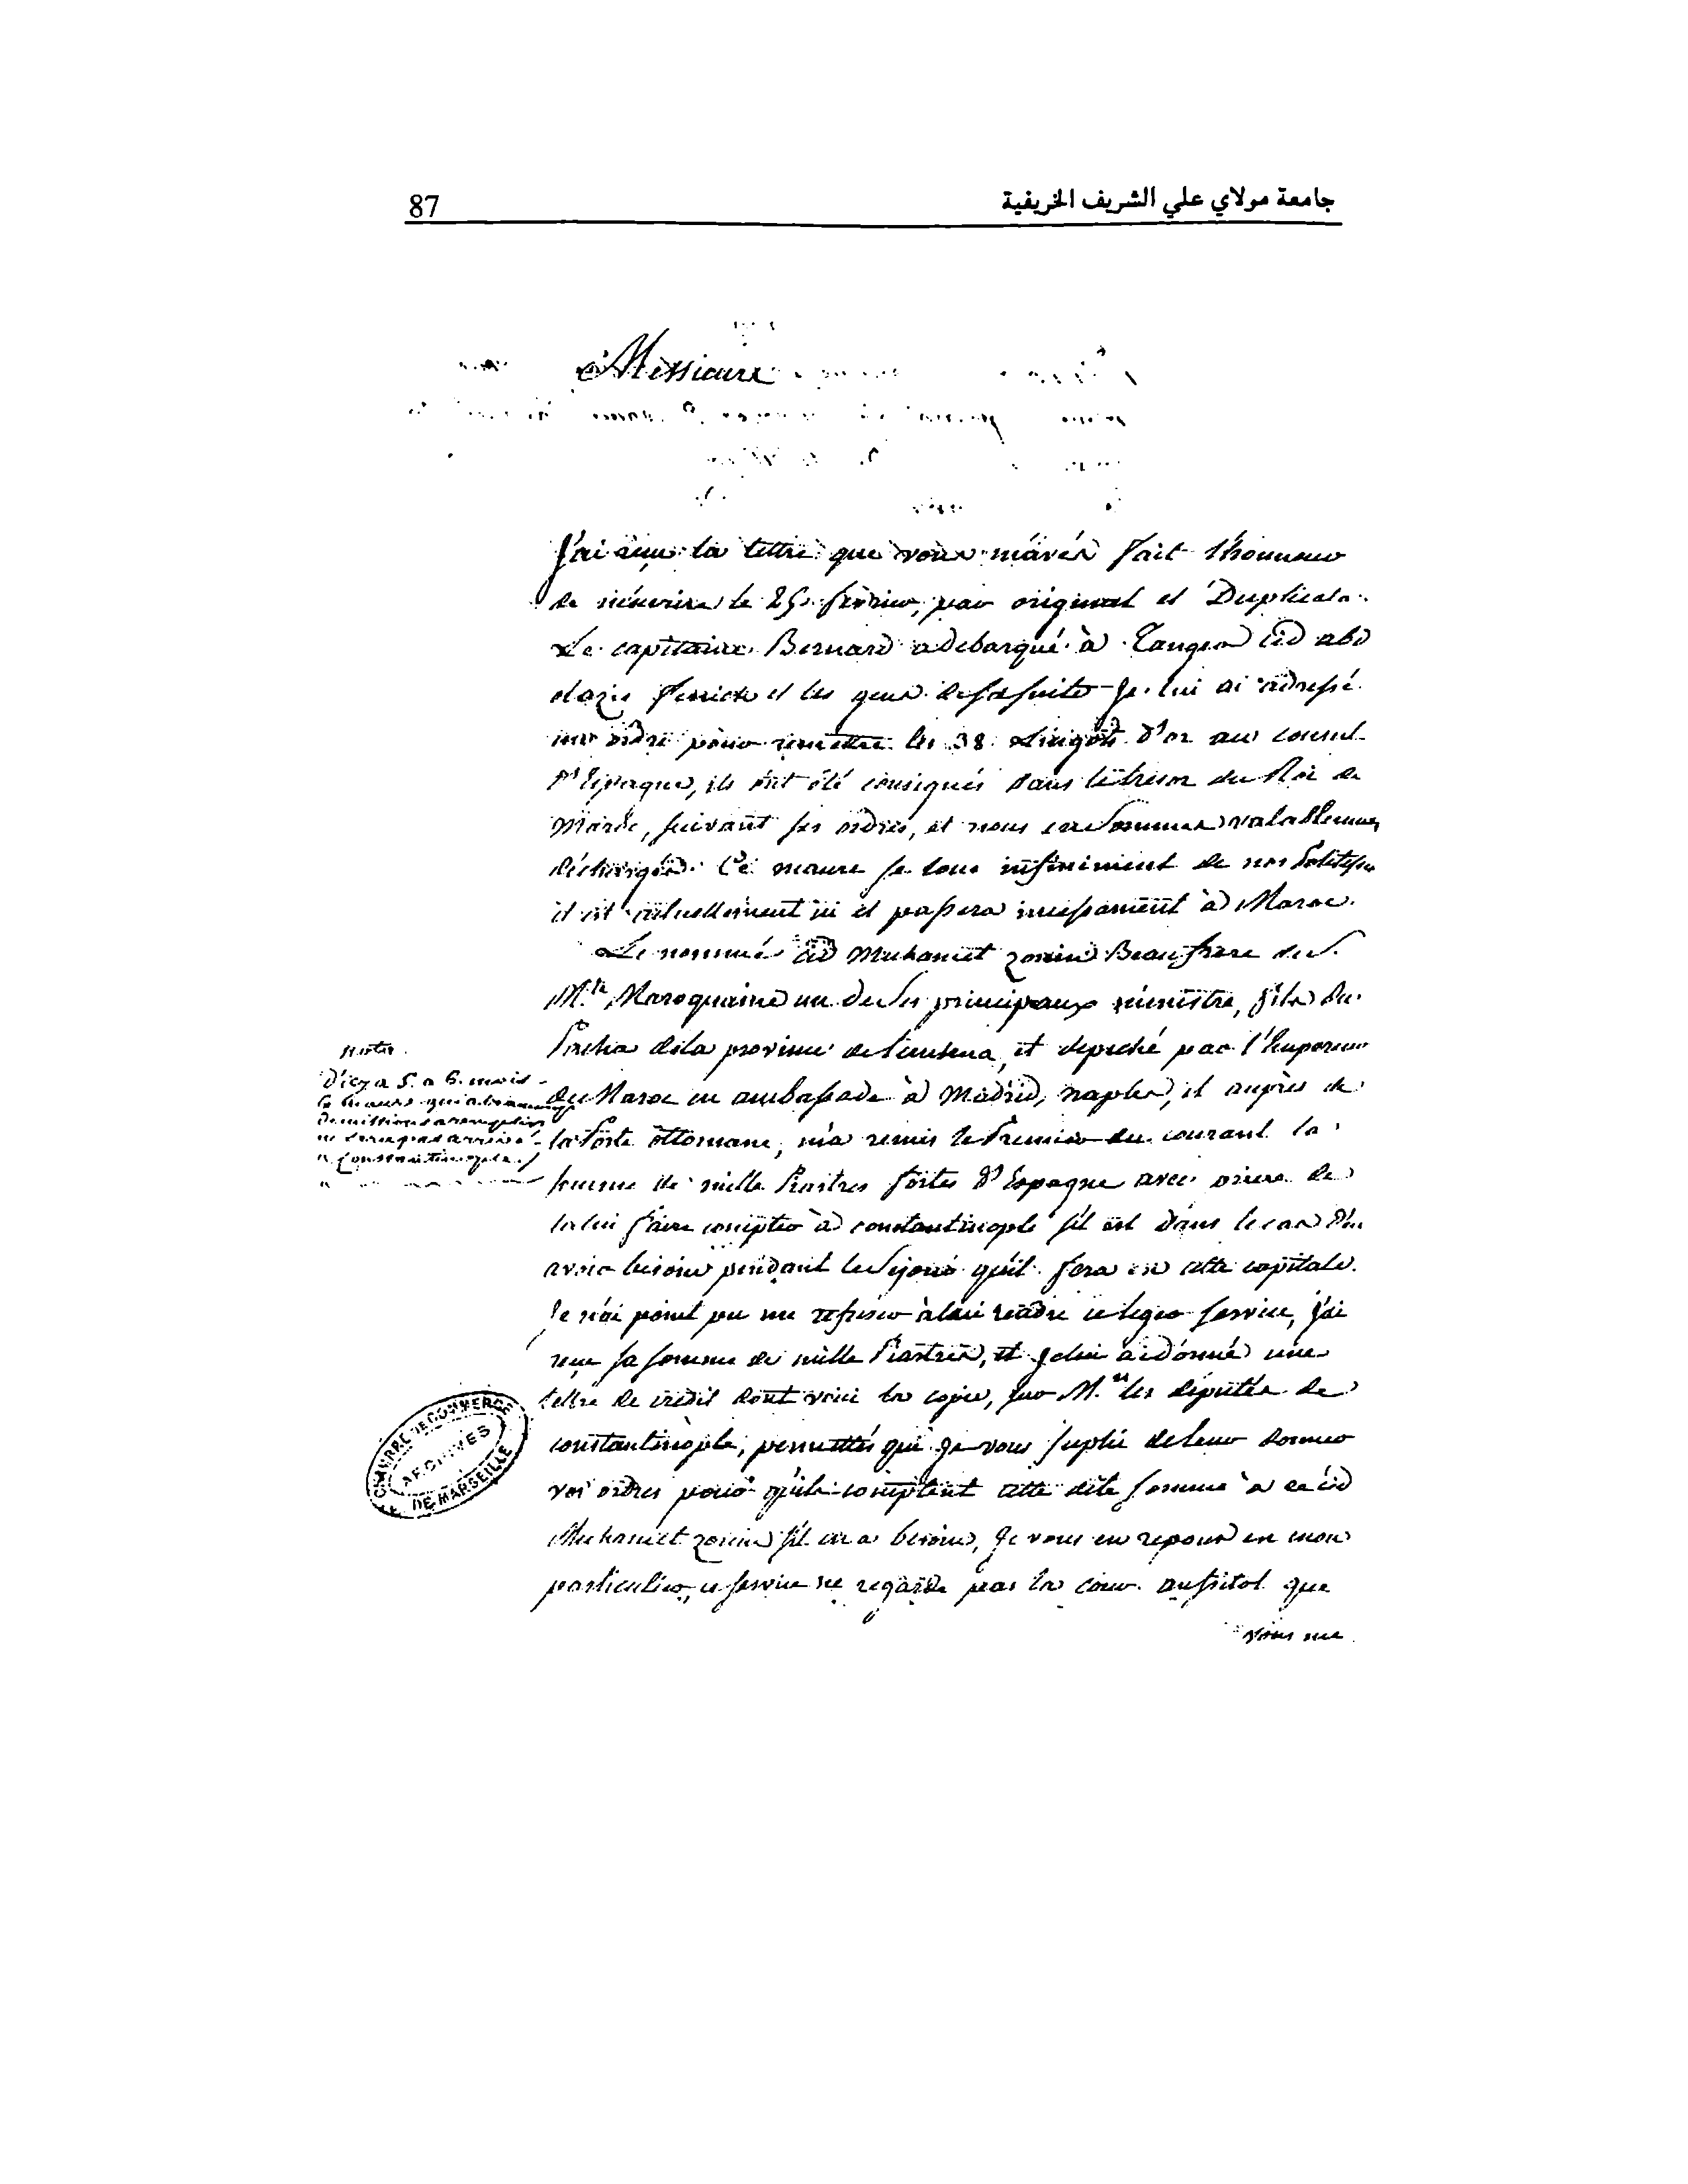 87
جامعة مولاي علي الشريف الخريفية
Messieurs
J'ai reçu la lettre que vous m'avés fait l'honneur
de m'écrire le 25. février, par original et Duplicata.
Le capitaine Bernard a debarqué à Tanger Cid abd
elazis et les gens de sa suite Je lui ai adressé
un ordre pour remettre les 38 Lingots d'or au consul
d'Espagne, ils ont été consignés dans le trésor du Roi de
Maroc, suivant ses ordres, et nous en sommes valablement
déchargés. Ce maure se loue infiniment de nos Politesses
il est actuellement ici et passera incessament à Maroc.
Le nommé Cid Muhamet zouin Beaufrere de S.
M.té Maroquaine un de ses principaux ministre, fils du
Pacha de la province de et depeché par l'Empereur
du Maroc en ambassade à Madrid, naples, et auprès de
la Porte ottomane, m'a remis le Premier du courant la
somme de mille Piastres fortes d'Espagne avec priere de
la lui faire compter à constantinople s'il est dans le cas d'en
avoir besoin pendant le sejour qu'il fera en cette capitale.
Je n'ai point pu me refuser à lui rendre ce leger service, j'ai
reçu sa somme de mille Piastres, et je lui ai donné une
lettre de credit dont voici la copie, sur M.rs les députés de
constantinople, permettés que je vous suplie de leur donner
vos ordres pour qu'ils comptent cette dite somme à ce Cid
Muhamet zouin s'il en a besoin, Je vous en repond en mon
particulier, ce service ne regarde pas la cour. aussitot que
vous me
Nota.
D'icy a 5. a 6. mois
le maure qui a beaucoup
de missions a remplir
ne sera pas arrivé
a Constantinople
CHAMBRE DE COMMERCE
ARCHIVES
DE MARSEILLE